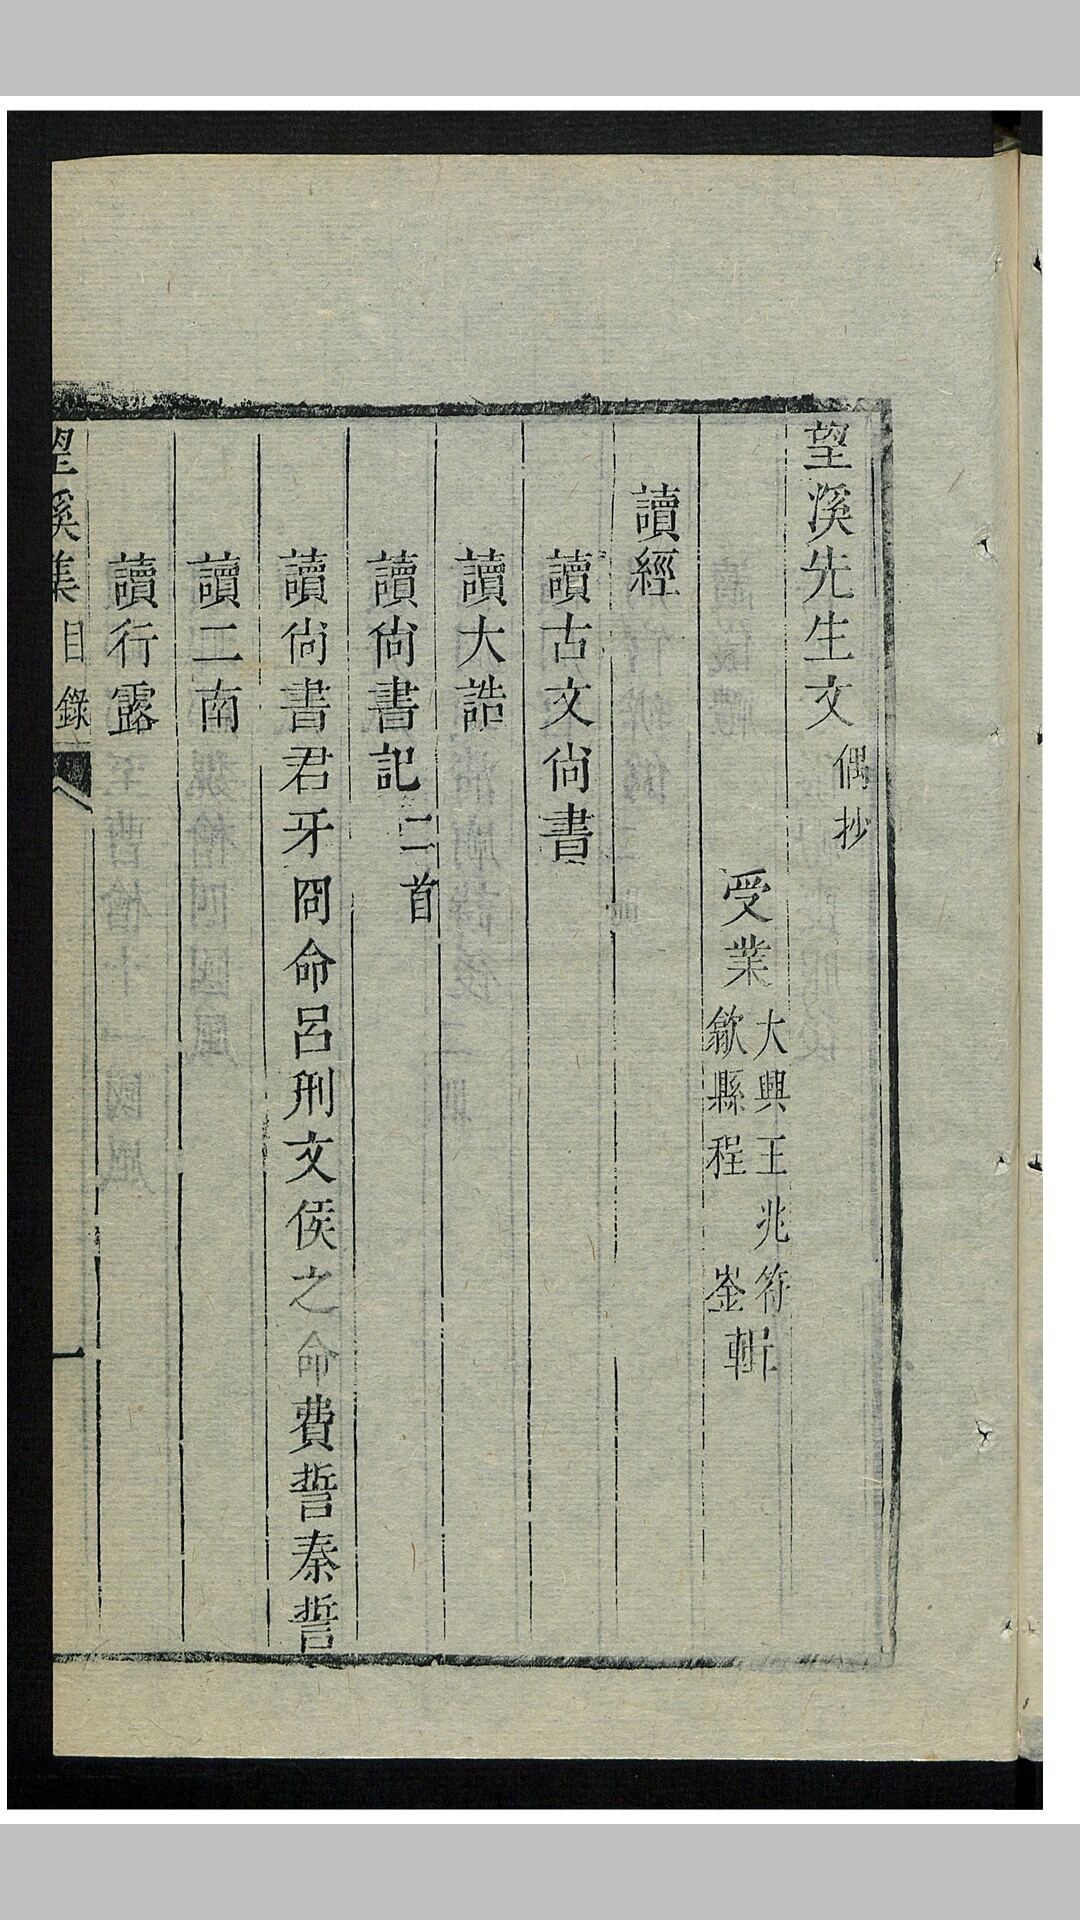 望溪先生文偶抄
受業大興王兆符歙縣程崟輯
讀經
讀古文尙書
讀大誥
讀尙書記二首
讀尙書君牙冏命呂刑文侯之命費誓秦誓
讀二南
讀行露
望溪集目錄 一